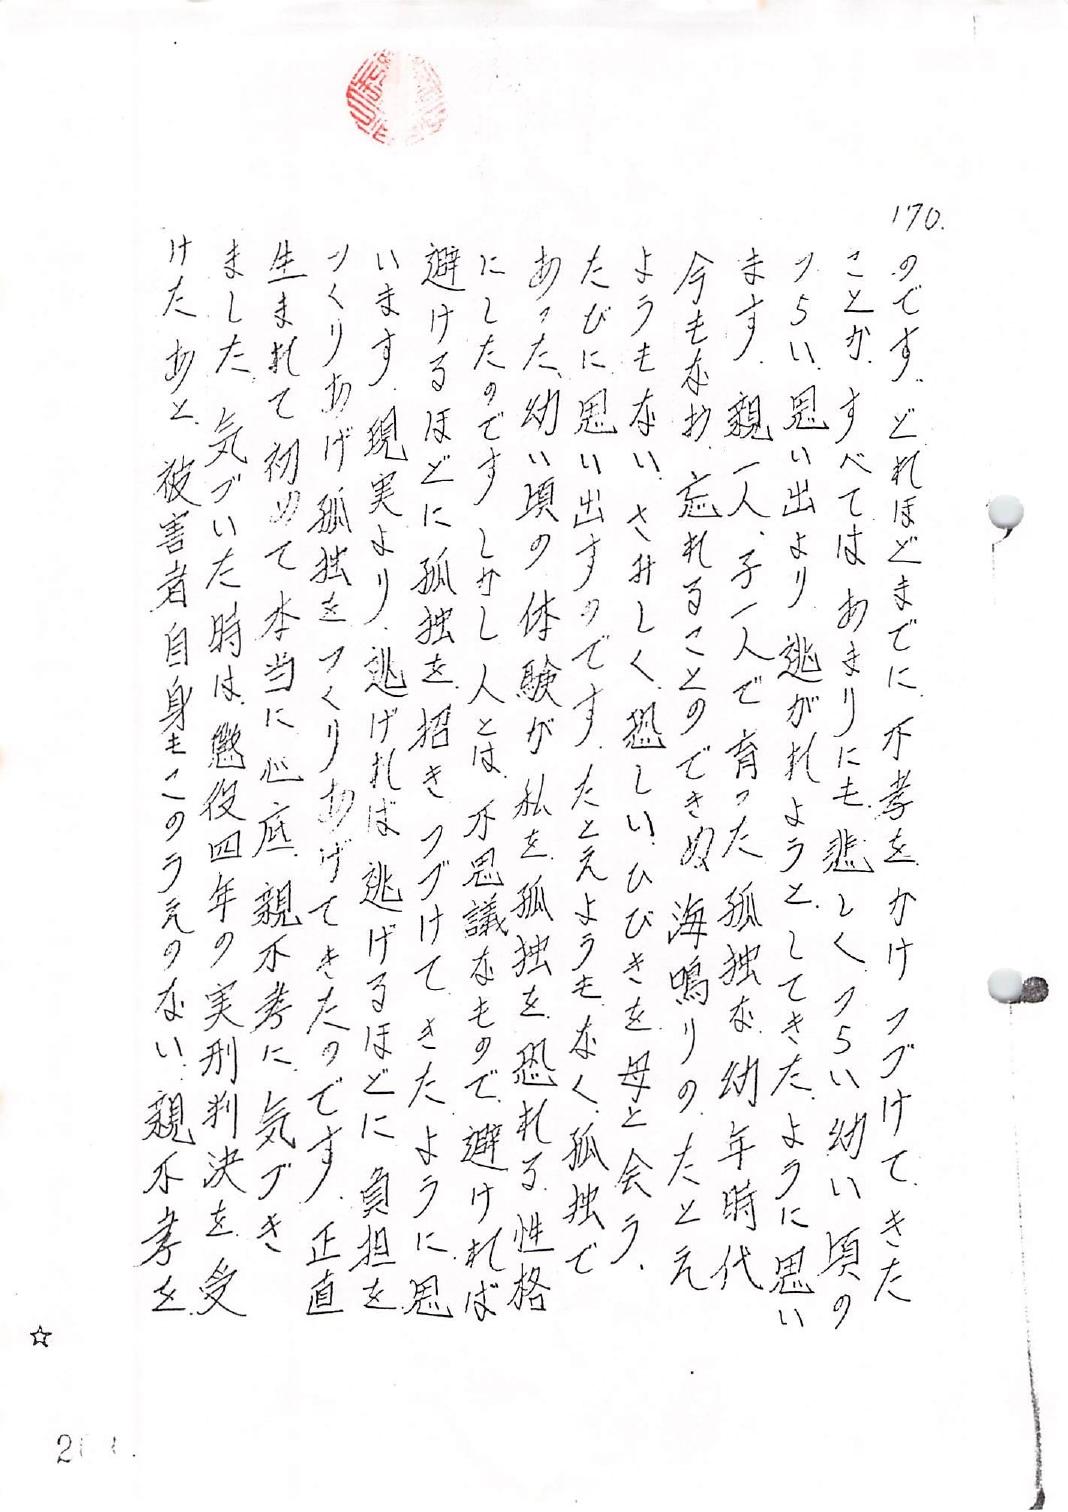 170.
のです。どれほどまでに、不孝を、かけつづけて、きた
ことか、すべては、あまりにも、悲しくつらい幼い頃の
つらい、思い出より、逃がれようと、してきた、ように思い
ます、親一人、子一人で育った孤独な、幼年時代
今もなお、忘れることのできぬ、海鳴りの、たとえ
ようもない、さみしく、恐しい、ひびきを母と会う、
たびに思い出すのです、たとえようも、なく、孤独で
あった、幼い頃の体験が私を、孤独を、恐れる、性格
にしたのです、しかし人とは、不思議なもので、避ければ
避けるほどに孤独を、招き、つづけて、きたように、思
います、現実より、逃げれば、逃げるほどに、負担を
つくりあげ孤独を、つくりあげてきたのです、正直
生まれて初めて本当に心底、親不孝に、気づき
ました、気づいた時は、懲役四年の実刑判決を、受
けた、あと、被害者自身もこのうえのない、親不孝を、
☆